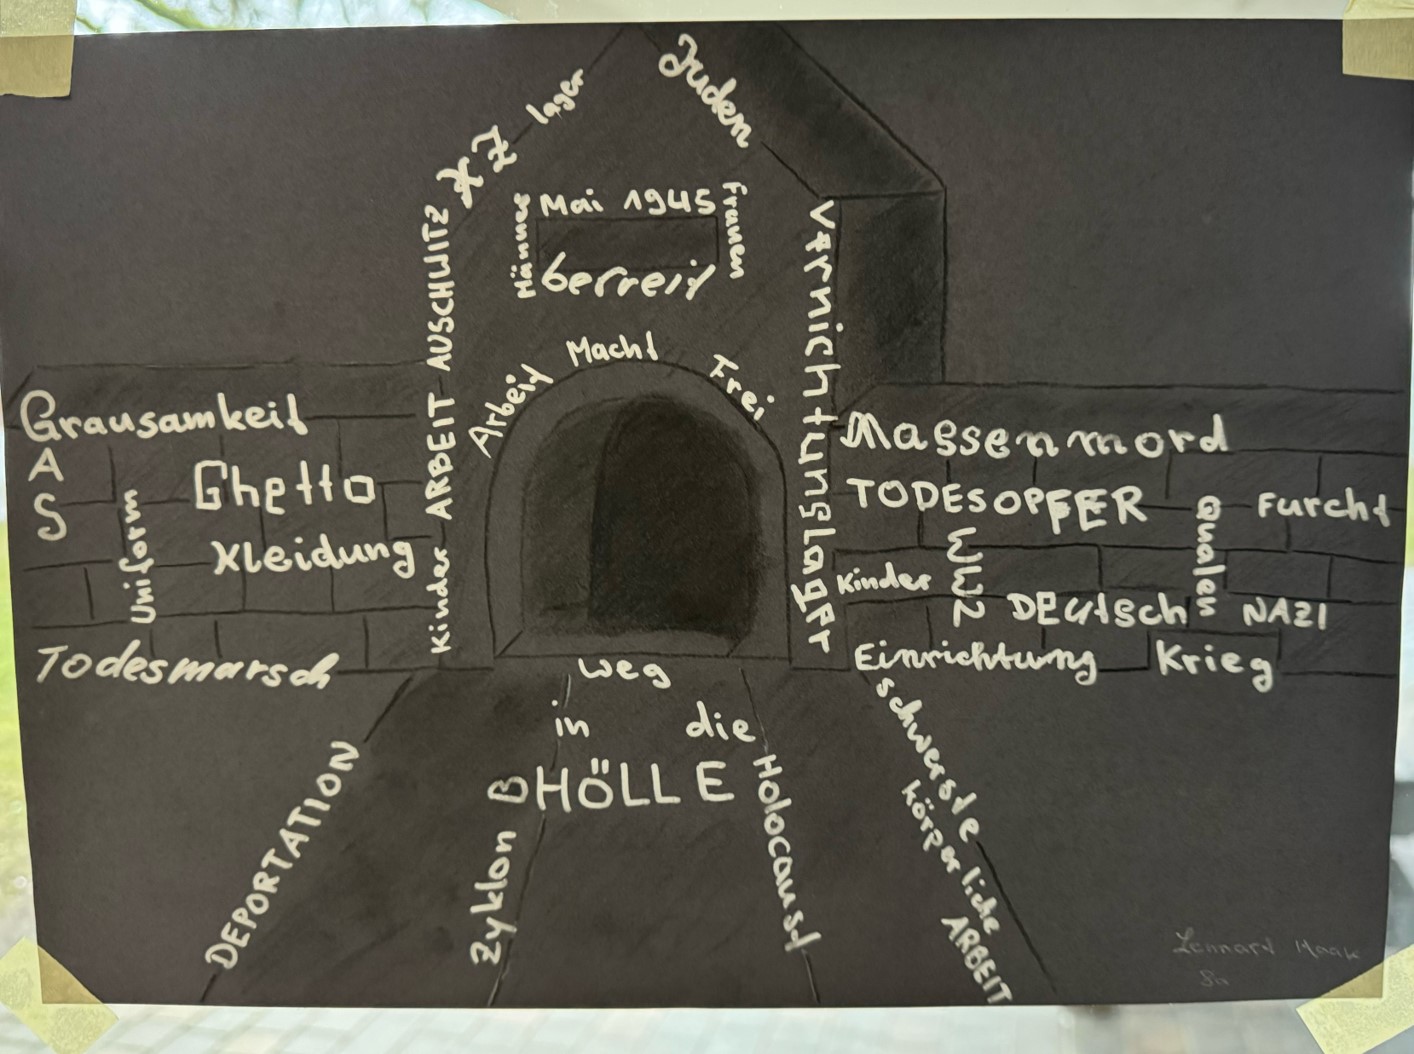 Juden
KZ lager
Mai 1945
Männer
Frauen
berreit
AUSCHWITZ
ARBEIT
Kinder
Vernichtungslager
Arbeit Macht Frei
Grausamkeit
GAS
Ghetto
Uniform
Kleidung
Todesmarsch
Massenmord
TODESOPFER
Qualen
Furcht
WW2
Kinder
DEutsch
NAZI
Einrichtung
Krieg
weg
in die
HÖLLE
DEPORTATION
Zyklon B
Holocaust
schwerste
körperliche
ARBEIT
Lennard Maak
8a